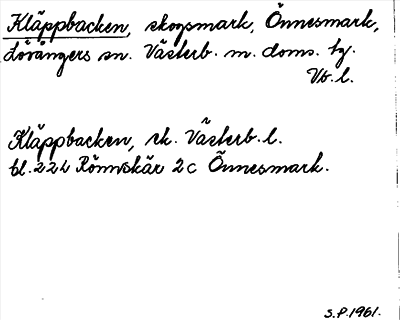 Kläppbacken, skogsmark, Önnesmark,
Lövångers sn. Västerb. m. doms. tg.
Vb. l.
Kläppbacken, sk. Västerb. l.
bl. 22L Rönnskär 2c Önnesmark.
S.P. 1961.